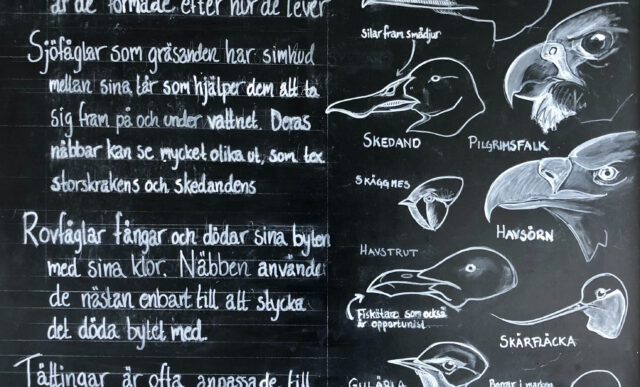 är de formade efter hur de lever
Sjöfåglar som gräsanden har simhud
mellan sina tår som hjälper dem att ta
sig fram på och under vattnet. Deras
näbbar kan se mycket olika ut, som tex
storskrakens och skedandens
Rovfåglar fångar och dödar sina byten
med sina klor. Näbben använder
de nästan enbart till att stycka
det döda bytet med.
Tättingar är ofta anpassade till
Silar fram smådjur
SKEDAND
PILGRIMSFALK
SKÄGGMES
HAVSÖRN
HAVSTRUT
Fiskätare som också
är opportunist
SKÄRFLÄCKA
GULÄRLA
Borrar i marken